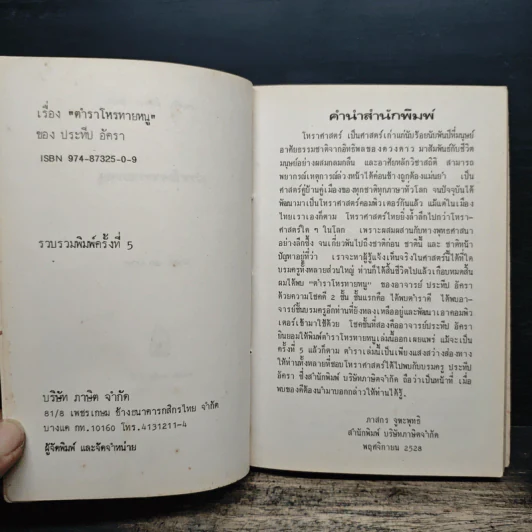 เรื่อง "ตำราโหรทายหนู"
ของ ประทีป อัครา
ISBN 974-87325-0-9
รวบรวมพิมพ์ครั้งที่ 5
บริษัท ภาษิต จำกัด
81/8 เพชรเกษม ข้างธนาคารกสิกรไทย จำกัด
บางแค กท.10160 โทร.4131211-4
ผู้จัดพิมพ์ และจัดจำหน่าย
คำนำสำนักพิมพ์
โหราศาสตร์ เป็นศาสตร์เก่าแก่นับร้อยนับพันปีที่มนุษย์
อาศัยธรรมชาติจากอิทธิพล ของดวงดาว มาสัมพันธ์กับชีวิต
มนุษย์อย่างผสมกลมกลืน และอาศัยหลักวิชาสถิติ สามารถ
พยากรณ์เหตุการณ์ล่วงหน้าได้ค่อนข้างถูกต้องแม่นยำ เป็น
ศาสตร์คู่บ้านคู่เมืองของทุกชาติทุกภาษาทั่วโลก จนปัจจุบันได้
พัฒนามาเป็นโหราศาสตร์คอมพิวเตอร์กันแล้ว แม้แต่ในเมือง
ไทยเราเองก็ตาม โหราศาสตร์ไทยยิ่งล้ำลึกไปกว่าโหรา-
ศาสตร์ใด ๆ ในโลก เพราะผสมผสานกับทางพุทธศาสนา
อย่างลึกซึ้ง จนเกี่ยวพันไปถึงชาติก่อน ชาตินี้ และ ชาติหน้า
ปัญหาอยู่ที่ว่า เราจะหาผู้รู้แจ้งเห็นจริงในศาสตร์นี้ได้ที่ใด
บรมครูทั้งหลายส่วนใหญ่ ท่านก็ได้สิ้นชีวิตไปแล้วเกือบหมดสิ้น
ผมได้พบ "ตำราโหรทายหนู" ของอาจารย์ ประทีป อัครา
ด้วยความโชคดี 2 ชั้น ชั้นแรกคือ ได้พบตำราดี ได้พบอา-
จารย์ชั้นบรมครูอีกท่านที่ยังหลงเหลืออยู่และพัฒนาเอาคอมพิว
เตอร์เข้ามาใช้ด้วย โชคชั้นที่สองคืออาจารย์ประทีป อัครา
ยินยอมให้พิมพ์ตำราโหรทายหนูเล่มนี้ออกเผยแพร่ แม้จะเป็น
ครั้งที่ 5 แล้วก็ตาม ตำราเล่มนี้เป็นเพียงแสงสว่างส่องทาง
ให้ท่านทั้งหลายที่ชอบโหราศาสตร์ได้ไปพบกับบรมครู ประทีป
อัครา ซึ่งสำนักพิมพ์ บริษัทภาษิตจำกัด ถือว่าเป็นหน้าที่ เมื่อ
พบของดีต้องนำมาบอกกล่าวให้ท่านได้รู้.
ภาสกร จูฑะพุทธิ
สำนักพิมพ์ บริษัทภาษิตจำกัด
พฤศจิกายน 2528